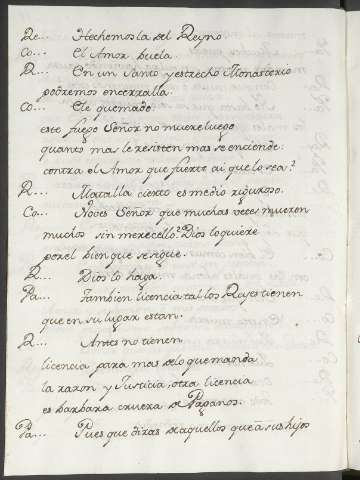 Re... Hechemosla del Reyno
Co... El Amor buela
R... En un Santo y estrecho Monasterio
podremos encerralla.
Co... Ele quemado
este fuego Señor no muere luego
quanto mas le resisten mas se enciende.
contra el Amor que fuerte ai que lo sea?
R... Matalla cierto es medio riguroso.
Co... No ves Señor que muchas veces mueron
muchos sin merecello? Dios lo quiere
por el bien que se sigue.
R... Dios lo haga.
Pa... Tambien licencia tal los Reyes tienen
que en su lugar estan.
R... Antes no tienen
licencia para mas delo que manda
la razon y Justicia, otra licencia
es barbara crueza de Paganos.
Pa... Pues que diras de aquellos que â sus hijos